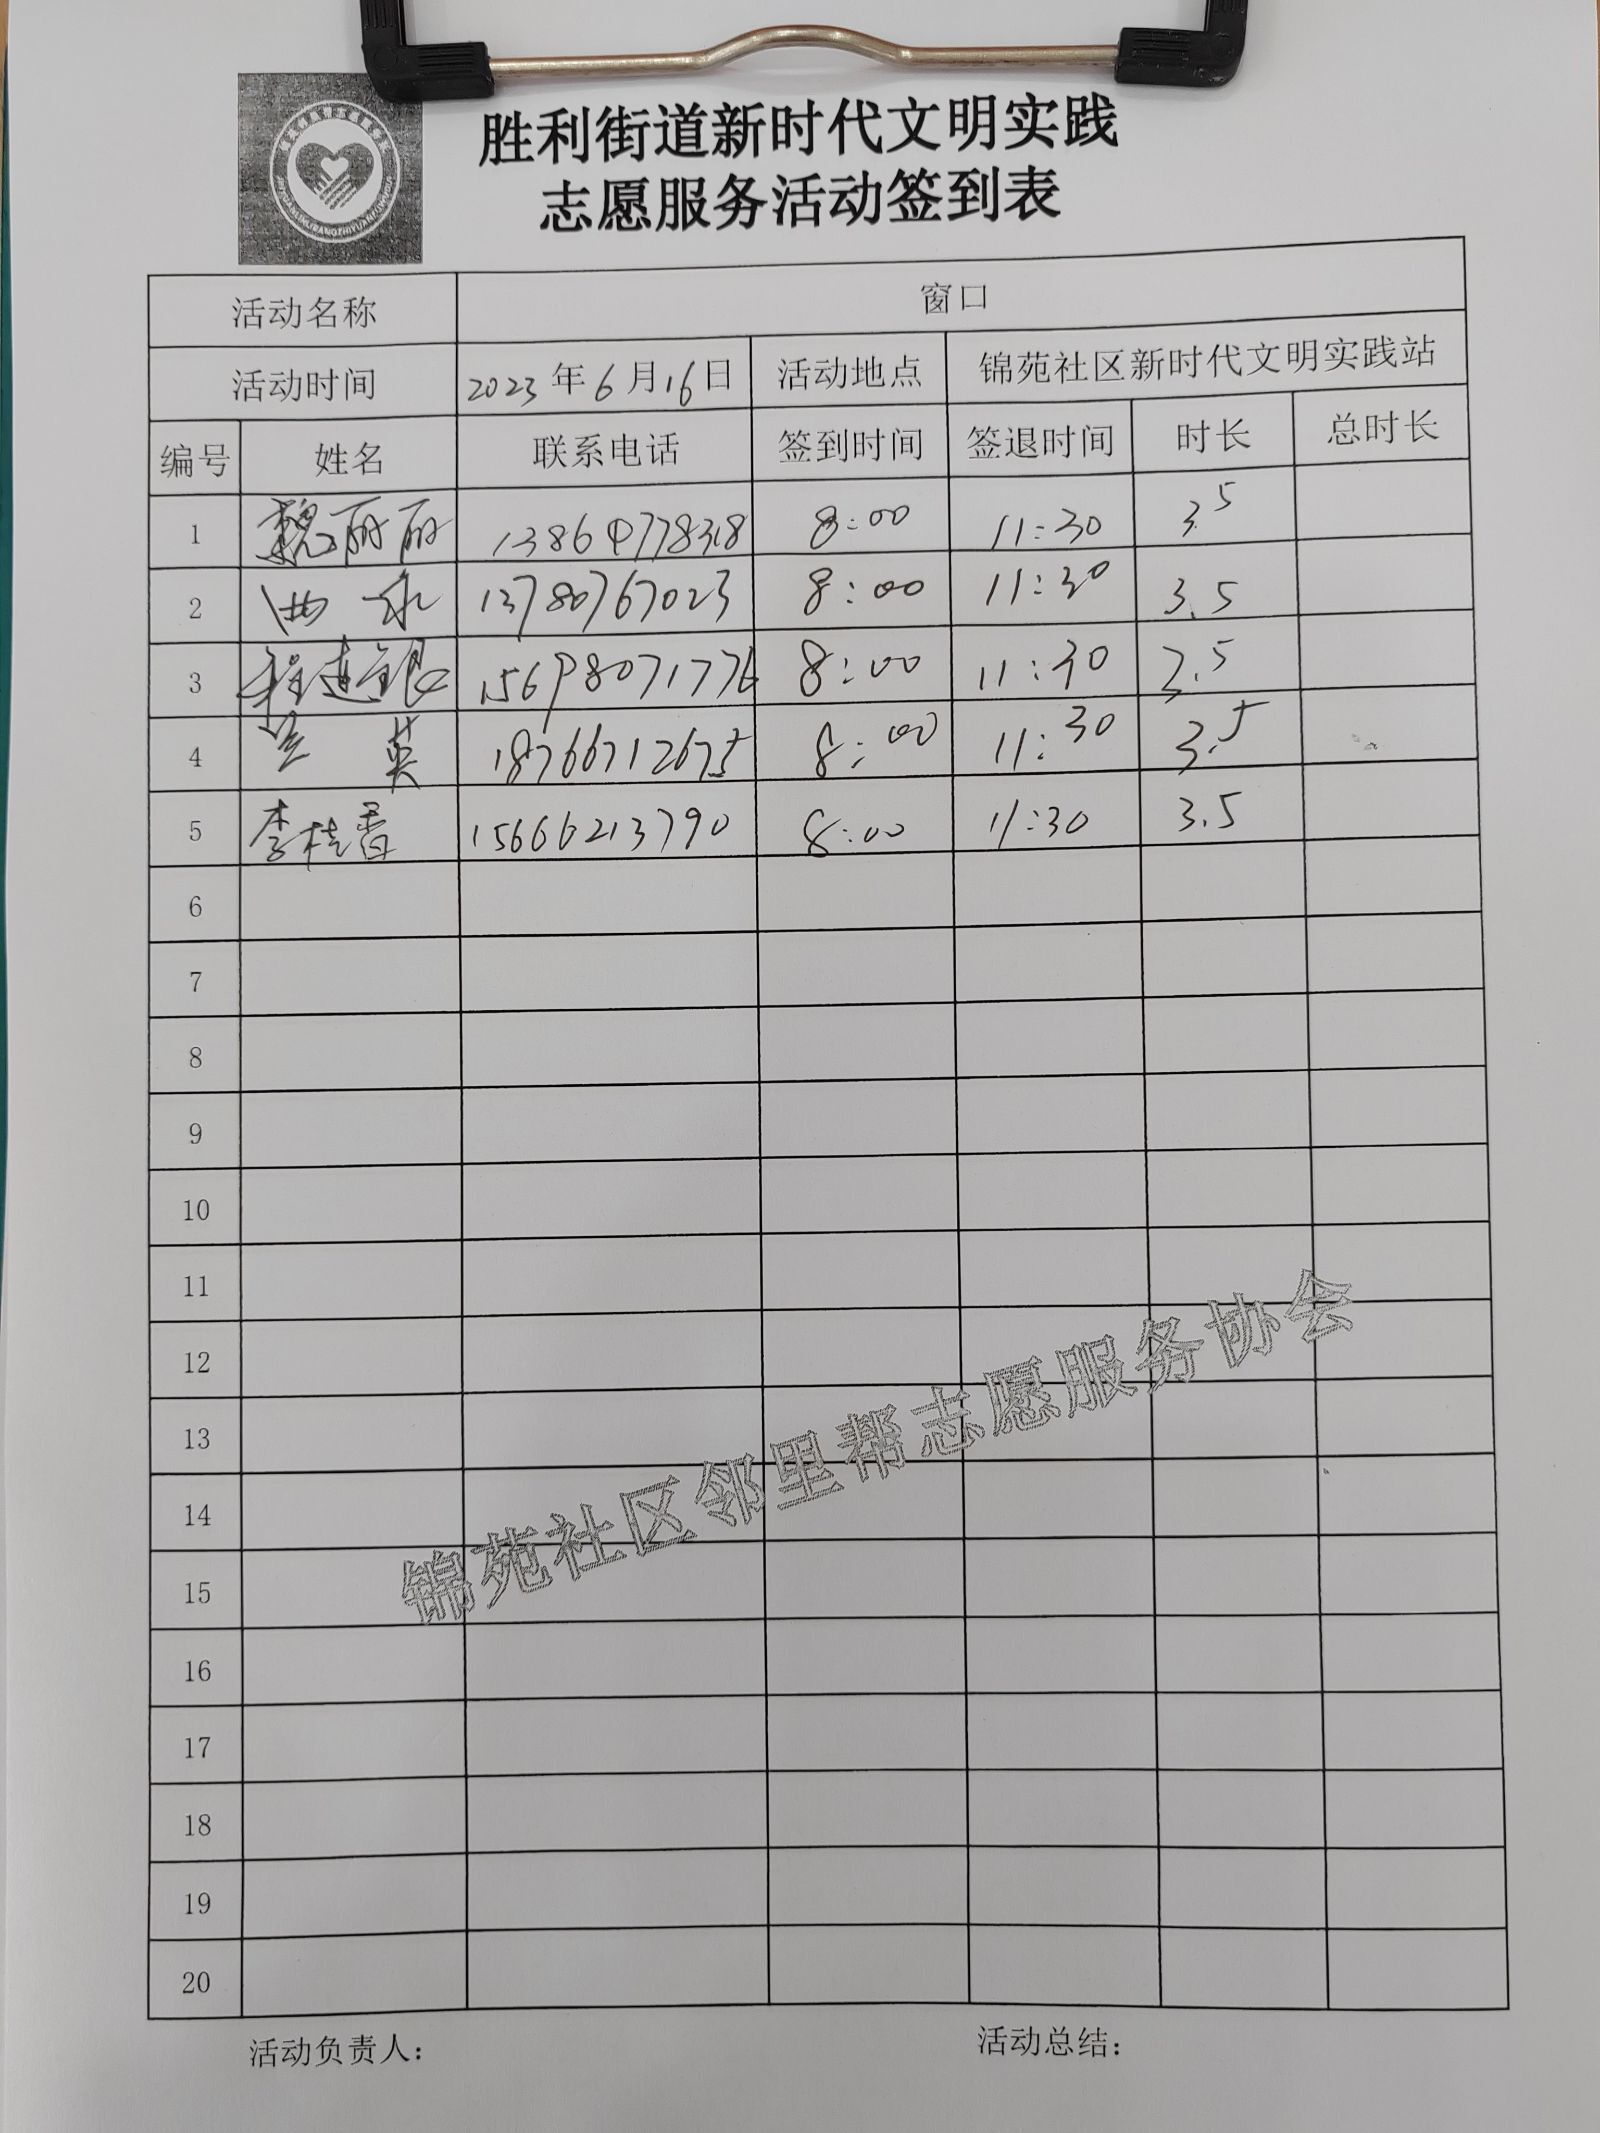 胜利街道新时代文明实践
志愿服务活动签到表
活动名称 窗口
活动时间 2023年6月16日 活动地点 锦苑社区新时代文明实践站
编号 姓名 联系电话 签到时间 签退时间 时长 总时长
1 魏丽丽 8:00 11:30 3.5
2 13780767023 8:00 11:30 3.5
3 程连银 15698071776 8:00 11:30 3.5
4 兰英 18766712675 8:00 11:30 3.5
5 李桂香 15666213790 8:00 11:30 3.5
6
7
8
9
10
11
12
13
14
15
16
17
18
19
20
锦苑社区邻里帮志愿服务协会
活动负责人： 活动总结：